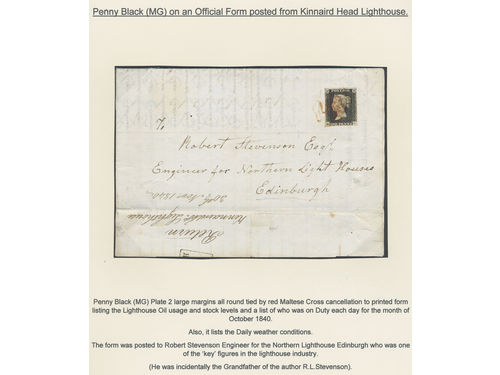 Penny Black (MG) on an Official Form posted from Kinnaird Head Lighthouse.
POSTAGE
To,
Robert Stevenson Esqr
Engineer for Northern Light Houses
Edinburgh
30th Nov 1840
Kinnairdhd Lighthouse
Return
Penny Black (MG) Plate 2 large margins all round tied by red Maltese Cross cancellation to printed form
listing the Lighthouse Oil usage and stock levels and a list of who was on Duty each day for the month of
October 1840.
Also, it lists the Daily weather conditions.
The form was posted to Robert Stevenson Engineer for the Northern Lighthouse Edinburgh who was one
of the 'key' figures in the lighthouse industry.
(He was incidentally the Grandfather of the author R.L.Stevenson).